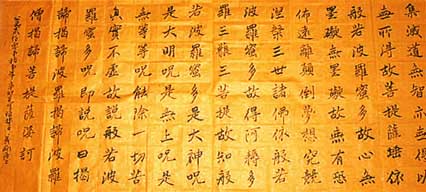 集滅道無智亦無得以
無所得故菩提薩埵依
般若波羅蜜多故心無
罣礙無罣礙故無有恐
怖遠離顛倒夢想究竟
涅槃三世諸佛依般若
波羅蜜多故得阿耨多
羅三藐三菩提故知般
若波羅蜜多是大神呪
是大明呪是無上呪是
無等等呪能除一切苦
真實不虛故說般若波
羅蜜多呪即說呪曰揭
諦揭諦波羅揭諦波羅
僧揭諦菩提薩婆訶